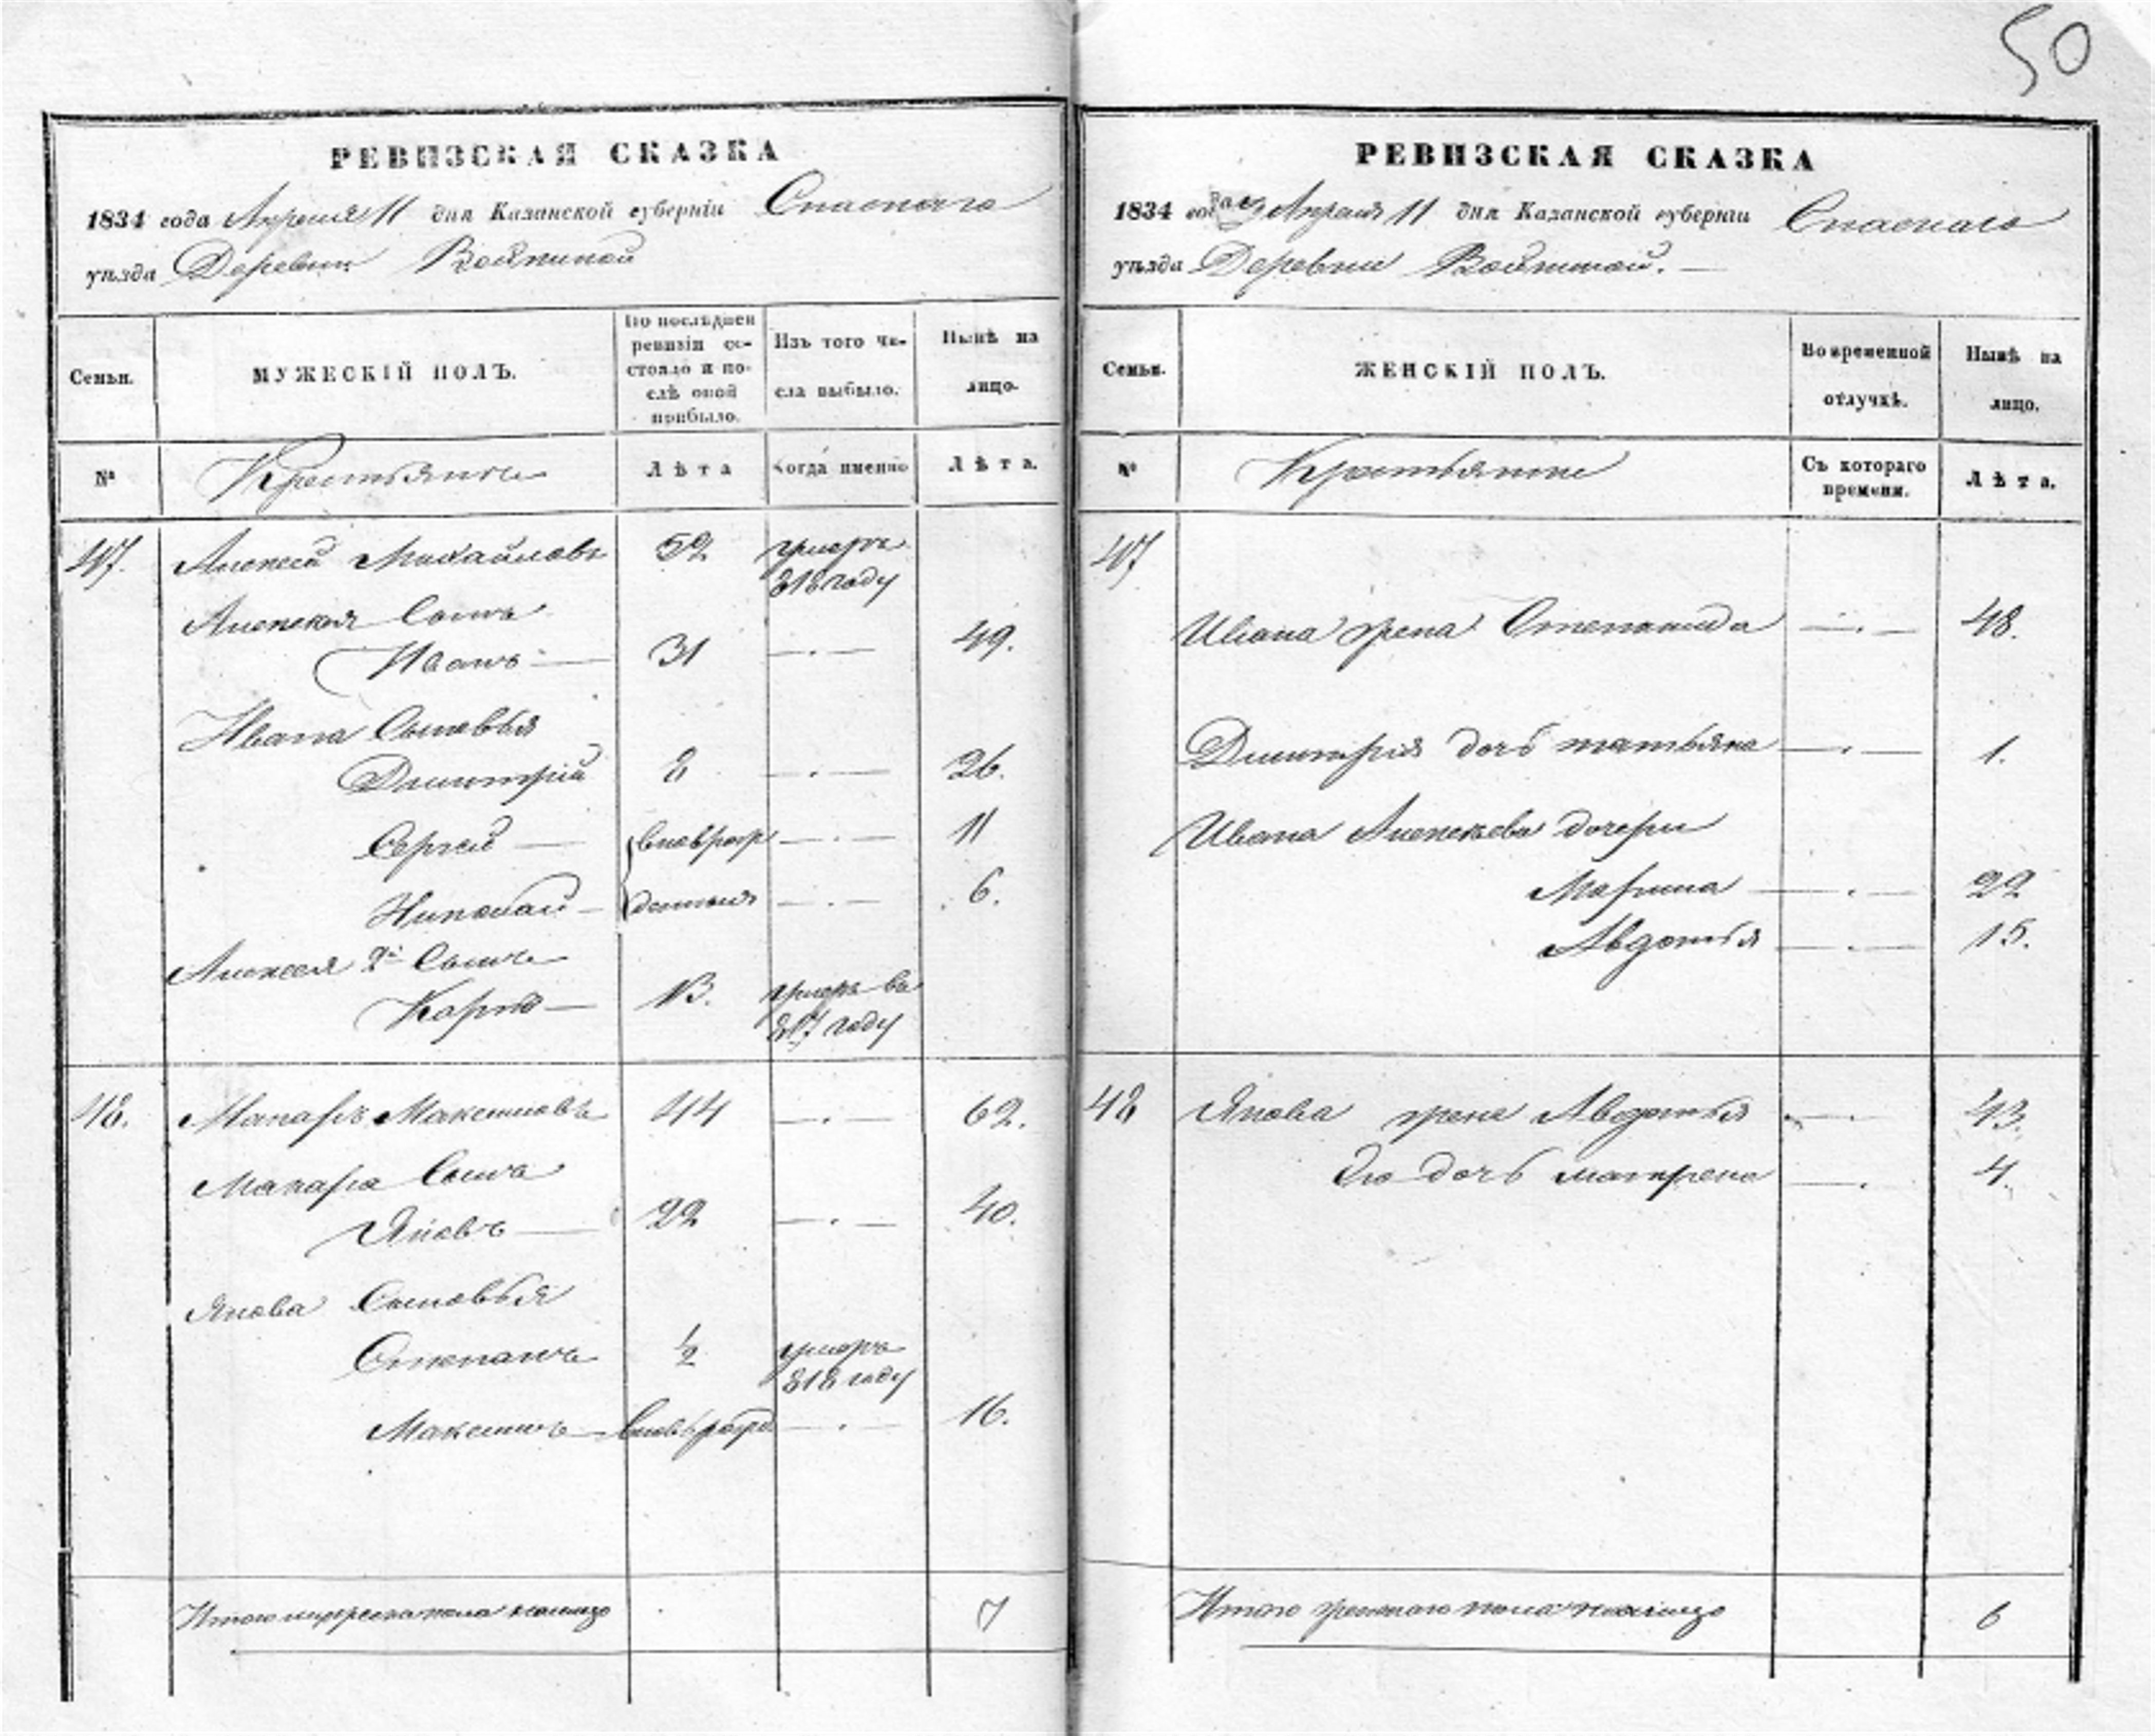 50
РЕВИЗСКАЯ СКАЗКА
1834 года Апреля 11 дня Казанской губерніи Спаскаго
уѣзда Деревни
Семьи.
МУЖЕСКІЙ ПОЛЪ.
По послѣдней ревизіи состояло и послѣ оной прибыло.
Изъ того числа выбыло.
Нынѣ на лицо.
№
Крестьяне
Лѣта
Когда именно
Лѣта.
47.
Алексей Михайловъ
52
умеръ
818 году
Алексея Сынъ
Иванъ
31
49.
Ивана Сыновья
Дмитрій
8
26.
Сергей
вновь рож
11
Николай
денныя
6.
Алексея 2й Сынъ
Карпъ
13.
умеръ въ
817 году
48.
Макаръ Максимовъ
44
62.
Макара Сынъ
Яковъ
22
40.
Якова Сыновья
Степанъ
1/2
умеръ
818 году
Максимъ
вновь рожд
16.
Итого мужеска пола налицо
7
РЕВИЗСКАЯ СКАЗКА
1834 года Апреля 11 дня Казанской губерніи Спаскаго
уѣзда Деревни
Семьи.
ЖЕНСКІЙ ПОЛЪ.
Во временной отлучкѣ.
Нынѣ на лицо.
№
Крестьяне
Съ котораго времени.
Лѣта.
47
Ивана жена Степанида
48.
Дмитрія дочь татьяна
1.
Ивана Алексеева дочери
Марина
22
Авдотья
15.
48
Якова жена Авдотья
43.
Его дочь матрена
4.
Итого женскаго пола налицо
6